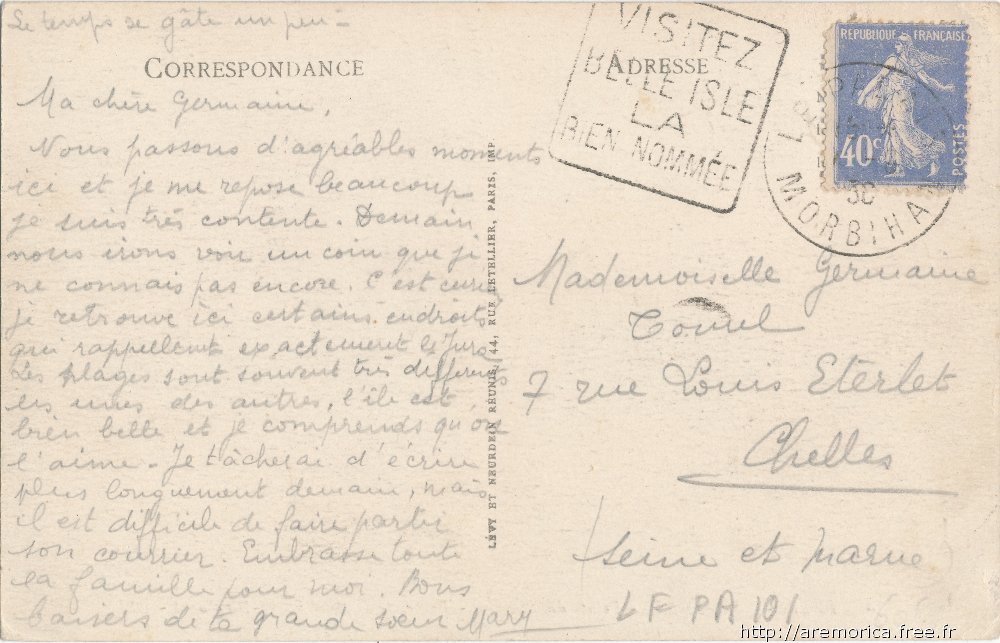 Le temps se gâte un peu -
CORRESPONDANCE
Ma chère Germaine,
Nous passons d'agréables moments
ici et je me repose beaucoup
je suis très contente. Demain
nous irons voir un coin que je
ne connais pas encore. C'est curieux
je retrouve ici certains endroits
qui rappellent exactement le Jura
Les plages sont souvent très différentes
les unes des autres, l'île est
bien belle et je comprends qu'on
l'aime - Je tâcherai d'écrire
plus longuement demain, mais
il est difficile de faire partir
son courrier. Embrasse toute
la famille pour moi. Bons
baisers de ta grande sœur Mary
LÉVY ET NEURDEIN RÉUNIS, 44, RUE LETELLIER, PARIS, IMP
VISITEZ
BELLE ISLE
LA
BIEN NOMMÉE
ADRESSE
RÉPUBLIQUE FRANÇAISE
40c
POSTES
LE PALAIS
30
MORBIHAN
Mademoiselle Germaine
7 rue Louis Eterlet
Chelles
Seine et Marne
LF PA 101
http://aremorica.free.fr